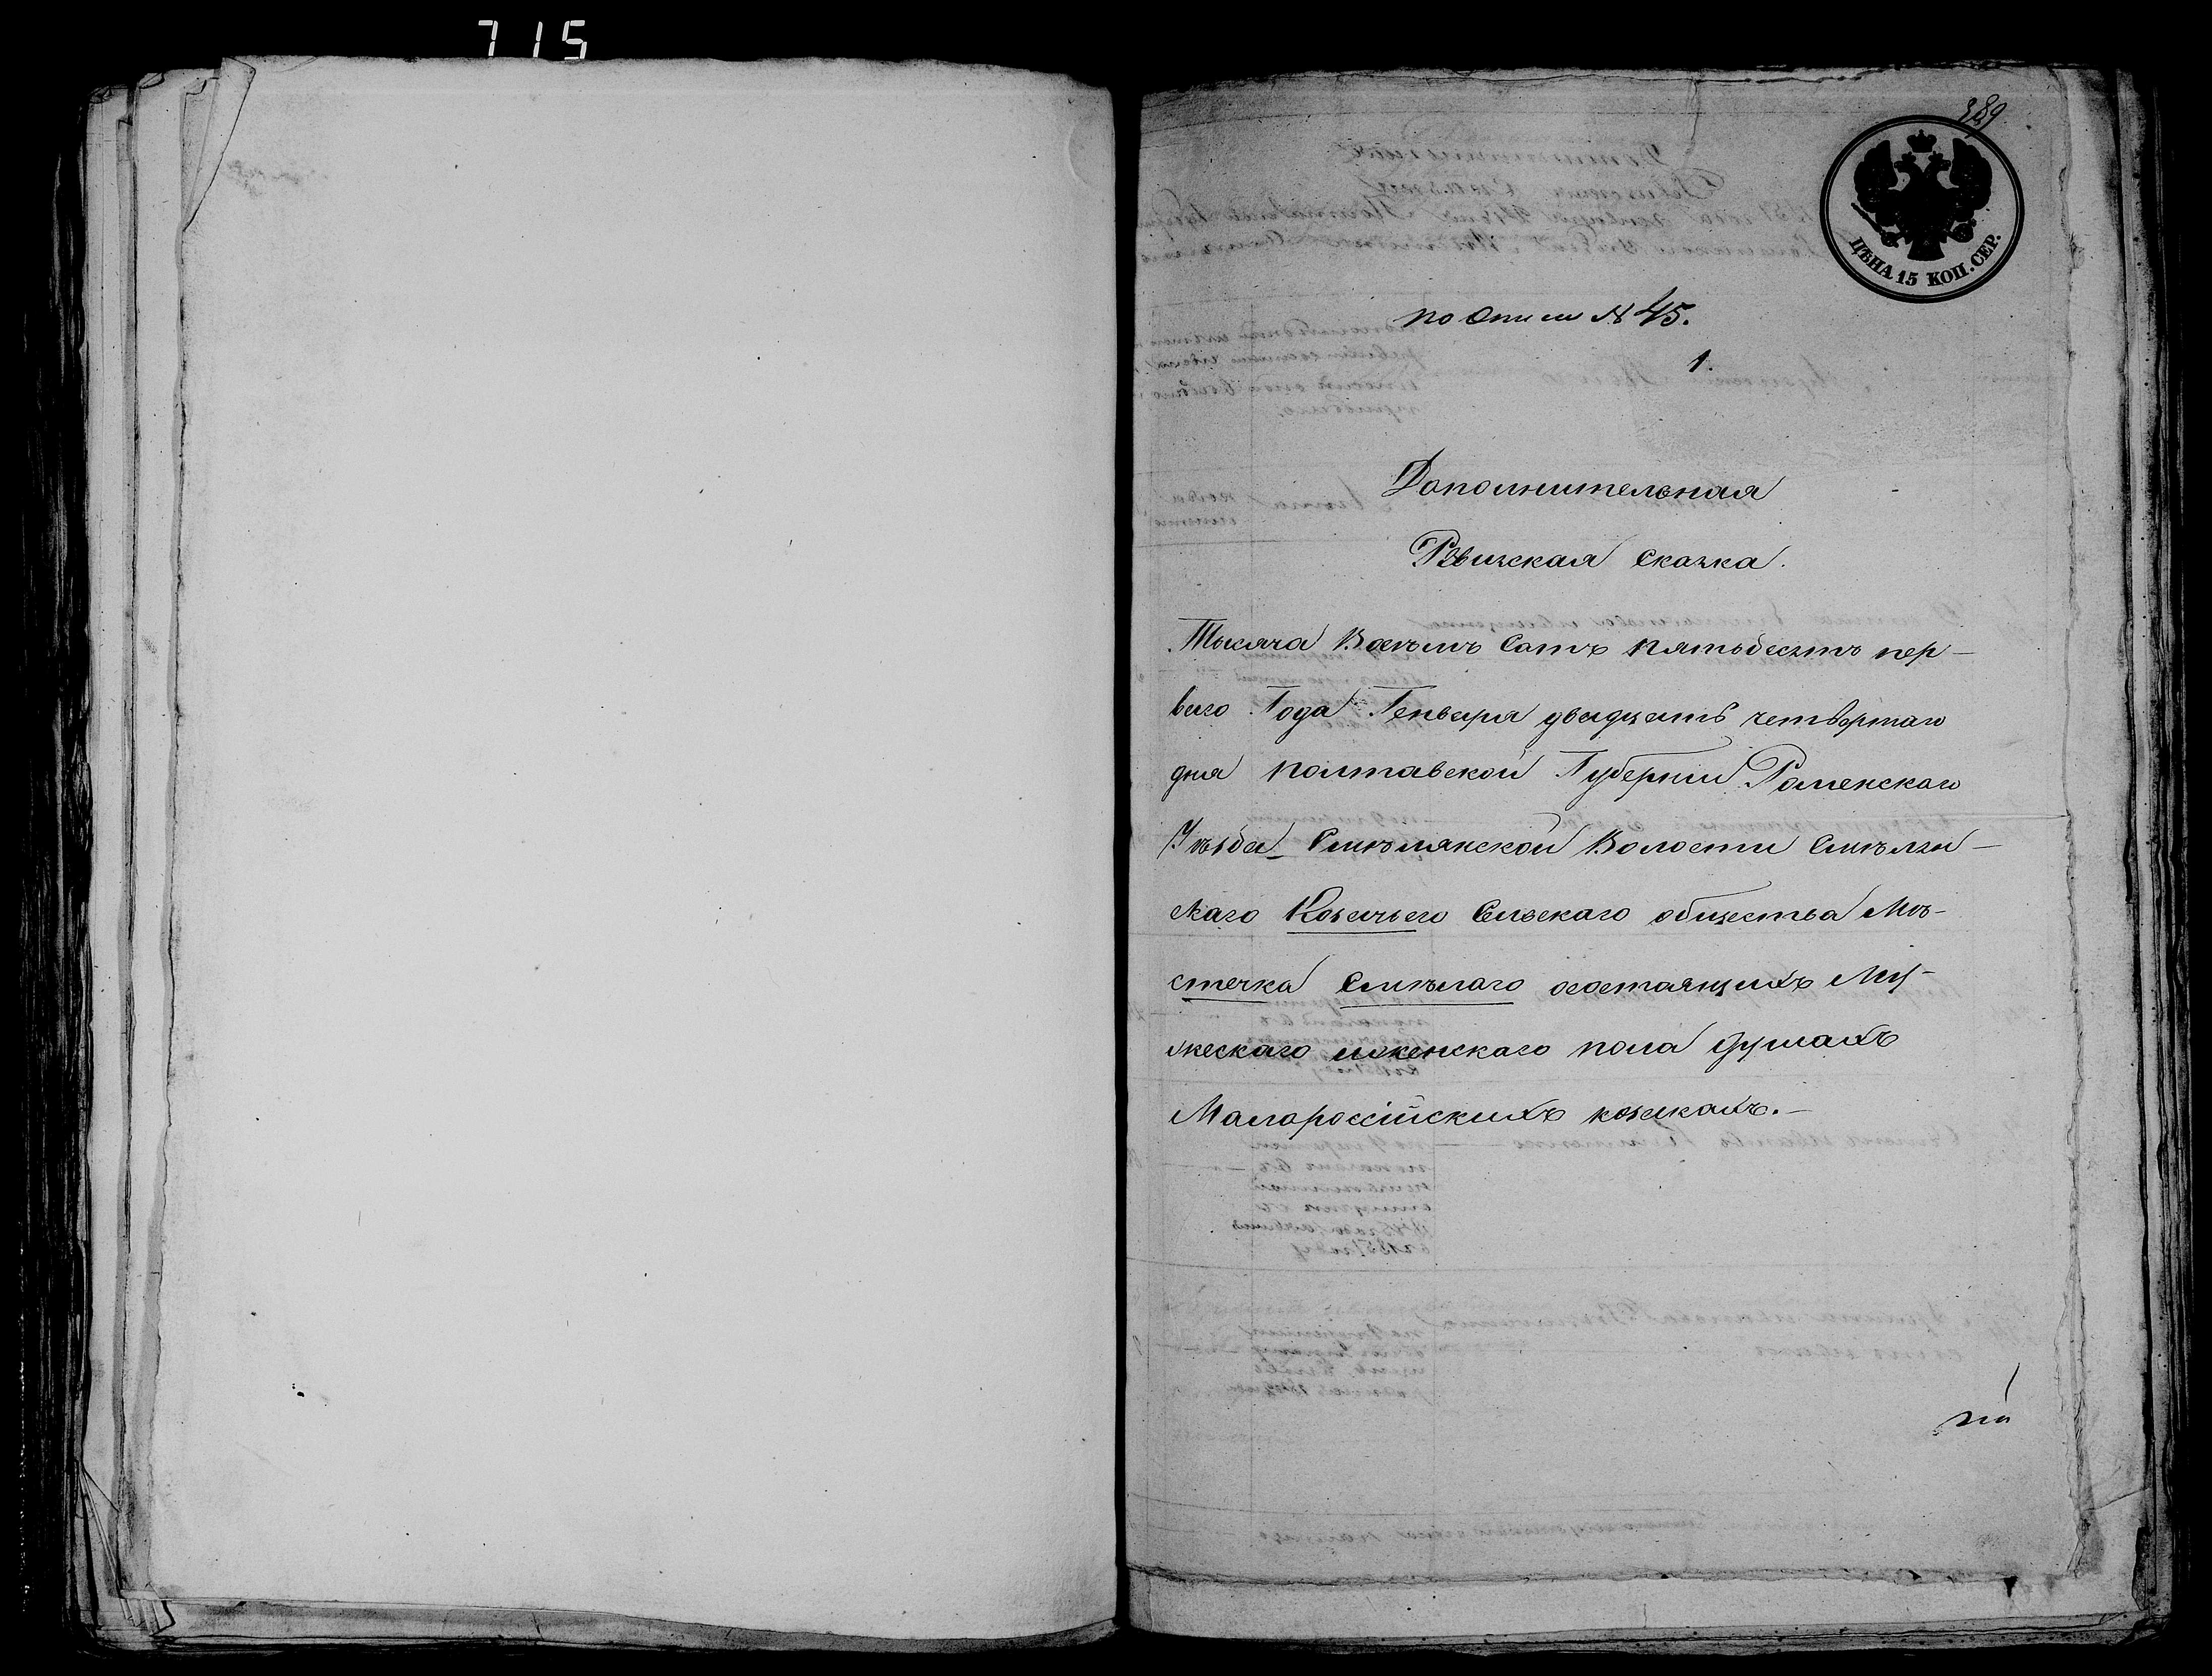 715
389
ЦѢНА 15 КОП. СЕР.
по описи № 45.
1.
Дополнительная
Ревизская Сказка.
Тысяча Восемъ Сотъ пятьдесятъ пер-
ваго Года Генваря двадцать четвертаго
дня Полтавской Губерніи Роменскаго
Уѣзда Смѣлянской Волости Смѣлян-
скаго Козачьего Сельскаго общества Мѣ-
стечка Смѣлаго состаящихъ Му-
жескаго иженскаго пола душахъ
Малороссійскихъ козакахъ.-